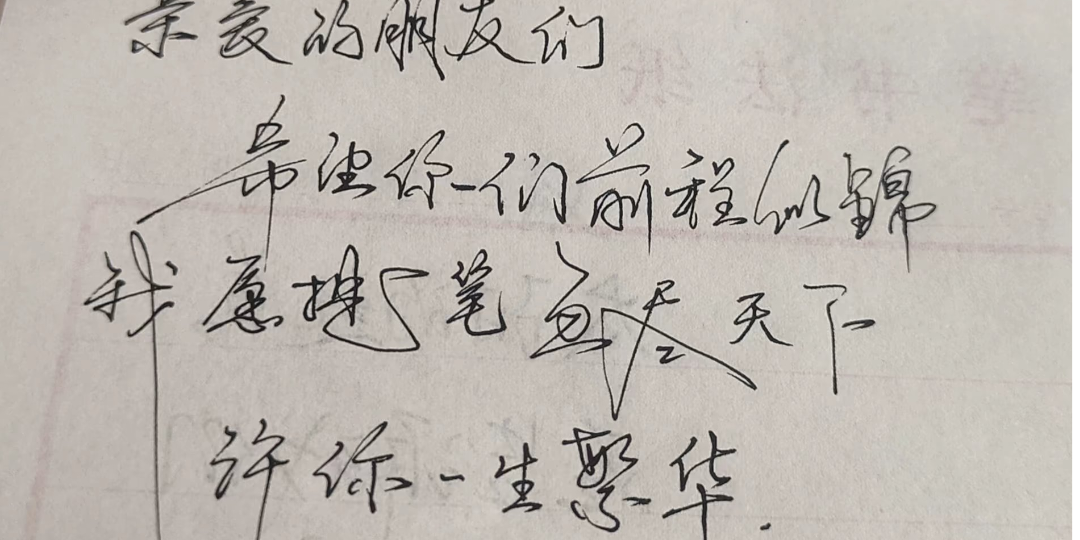 亲爱的朋友们
希望你们前程似锦
我愿提笔画尽天下
许你一生繁华.
笔书法纸